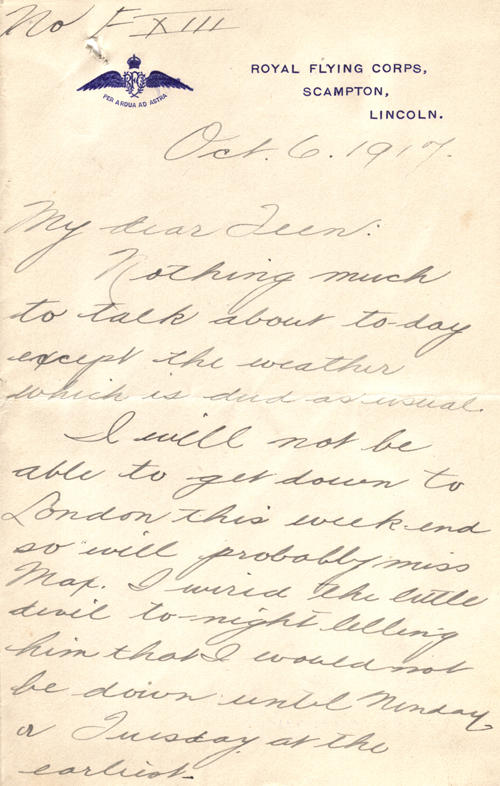 No XIII
RFC
PER ARDUA AD ASTRA
ROYAL FLYING CORPS,
SCAMPTON,
LINCOLN.
Oct. 6. 1917.
My dear Teen:
Nothing much
to talk about to-day
except the weather
which is dud as usual.
I will not be
able to get down to
London this week-end
so will probably miss
Max. I wired the little
devil to-night telling
him that I would not
be down until Monday
or Tuesday at the
earliest.